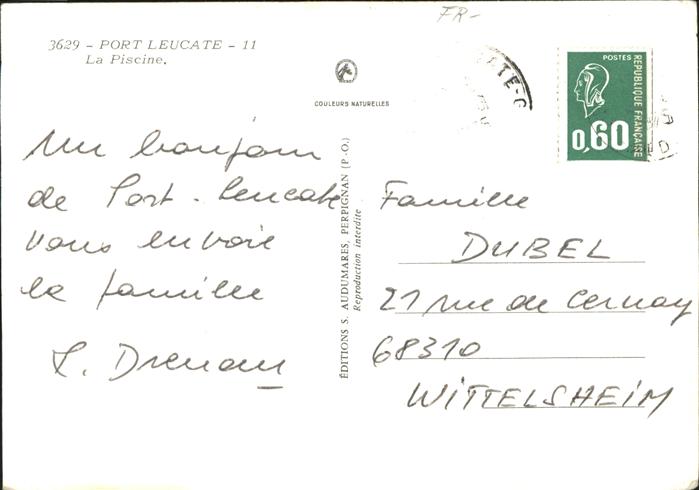 FR-
3629 - PORT LEUCATE - 11
La Piscine.
COULEURS NATURELLES
POSTES
REPUBLIQUE FRANÇAISE
0,60
Un bonjour
de Port-Leucate
vous envoie
la famille
ÉDITIONS S. AUDUMARES, PERPIGNAN (P.-O.)
Reproduction interdite
Famille
DUBEL
21 rue de Cernay
68310
WITTELSHEIM